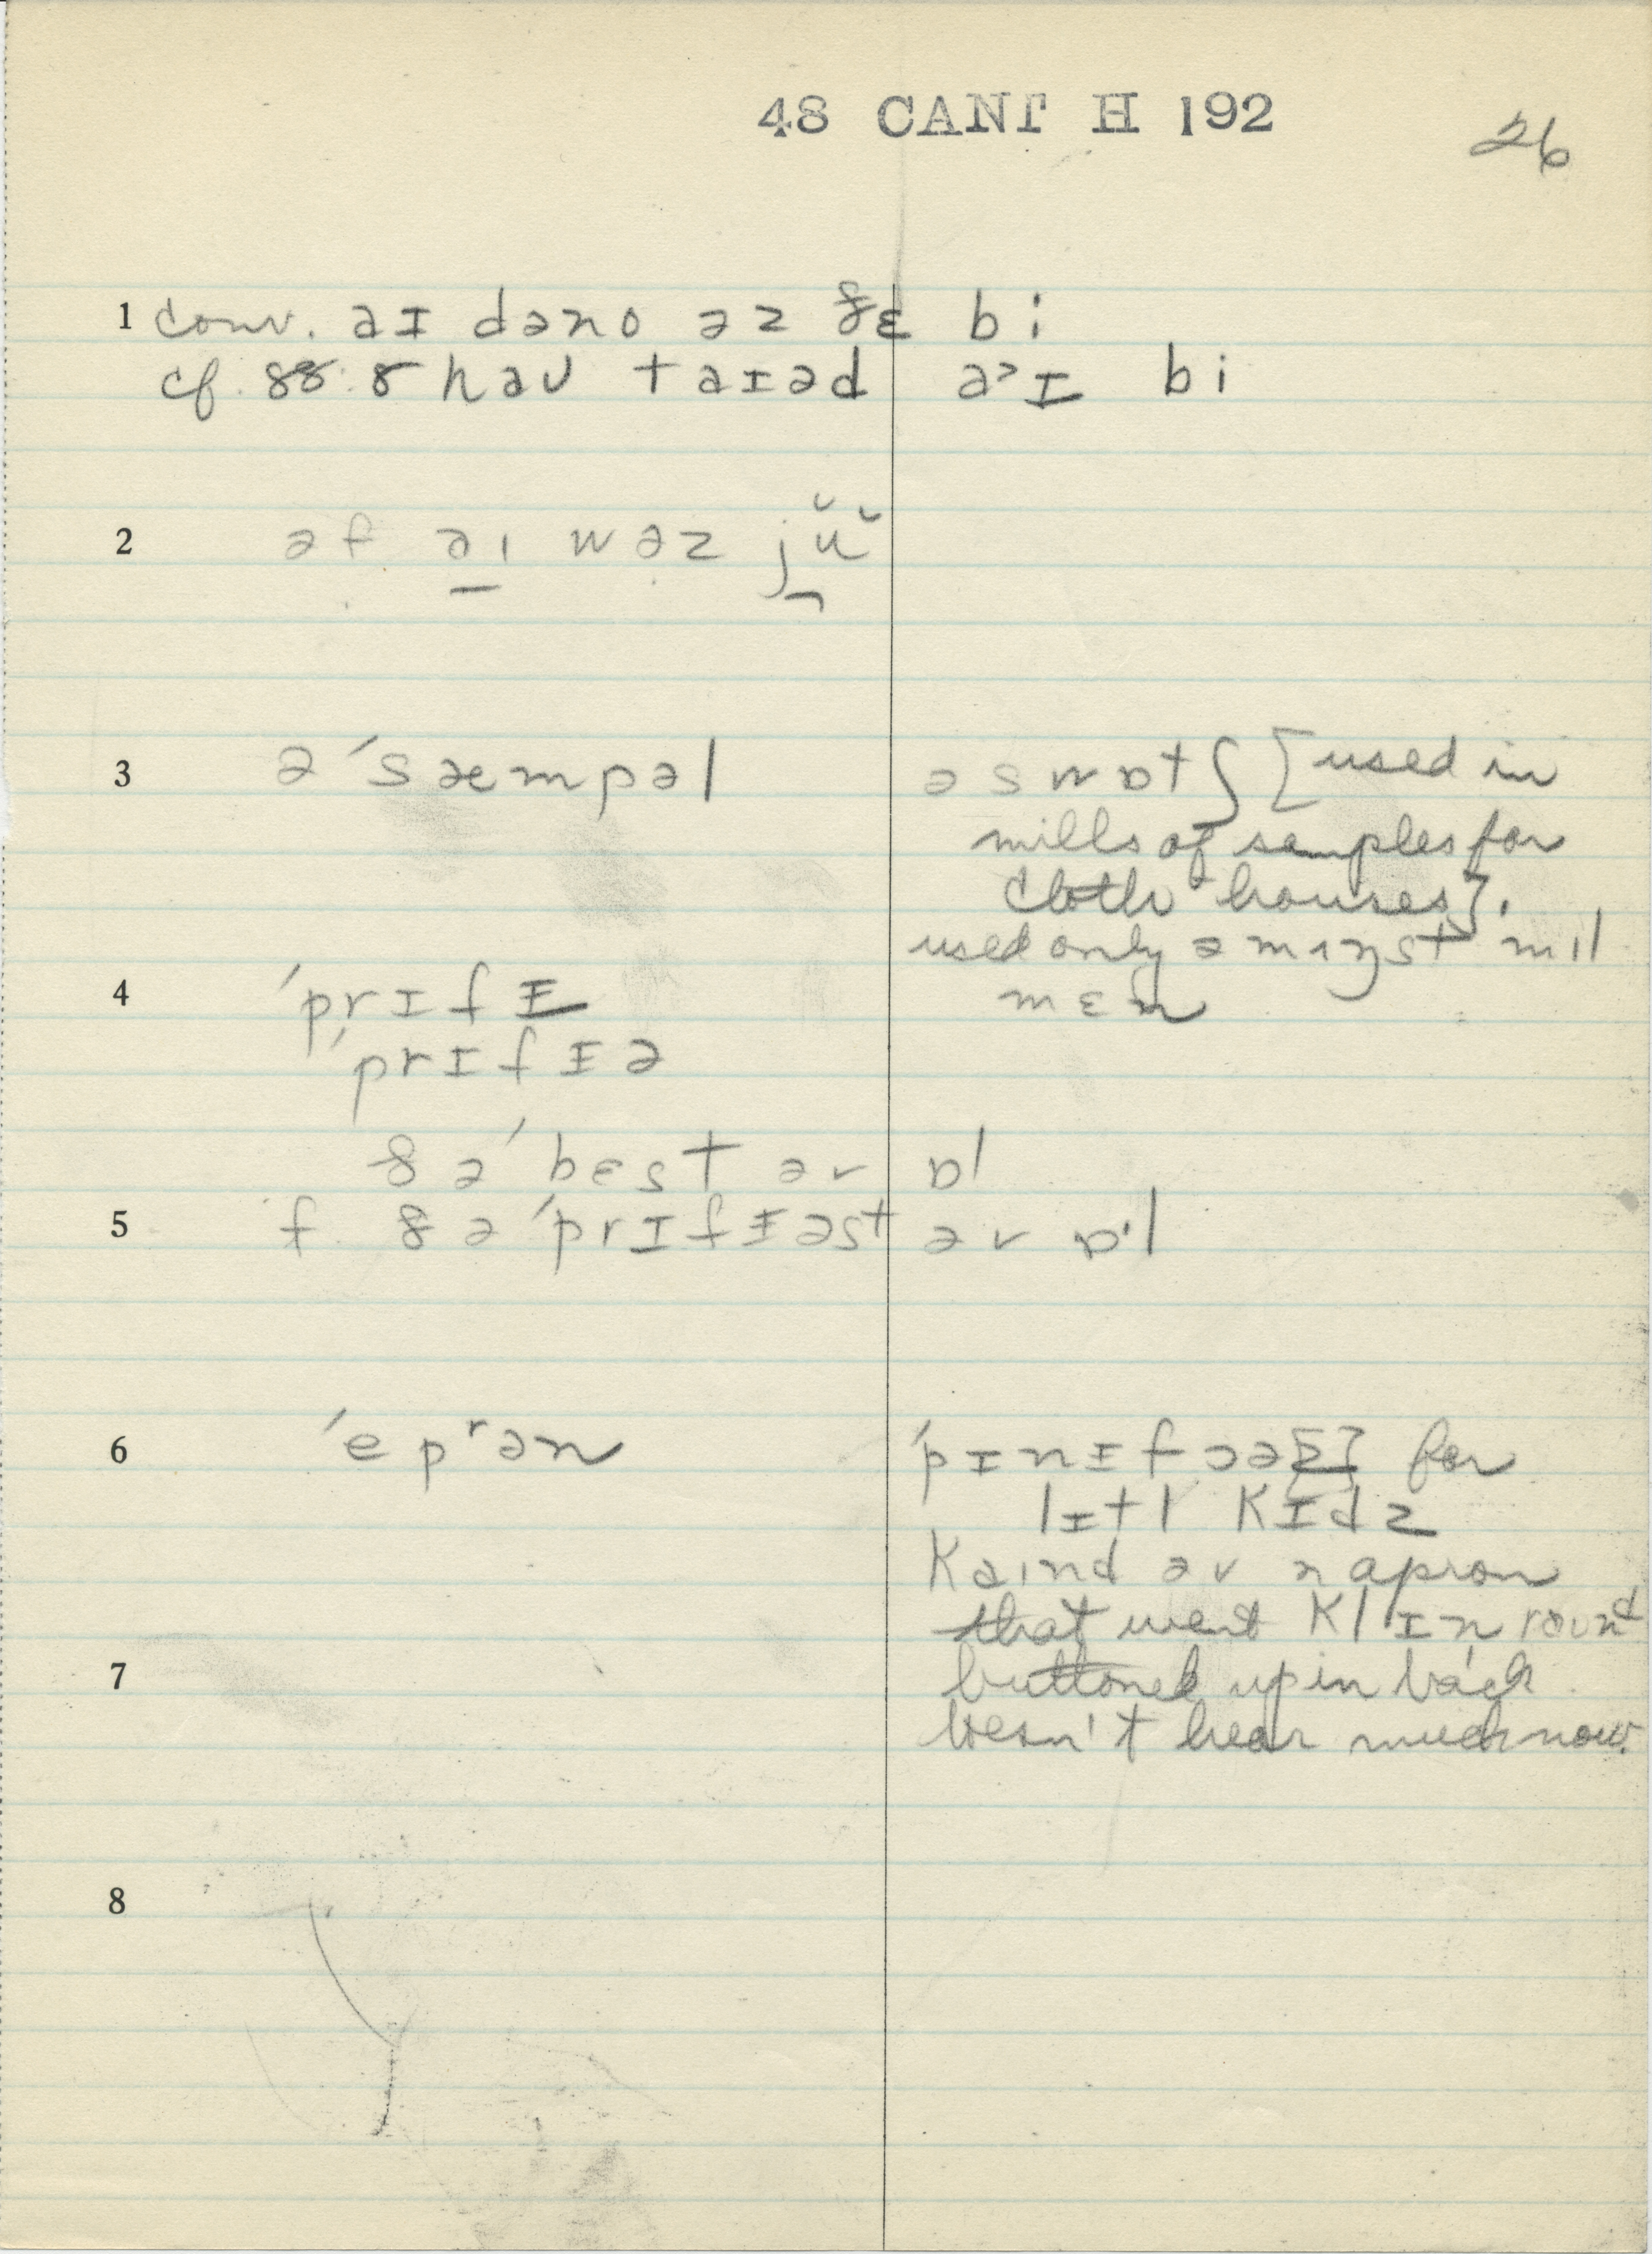 48 CANT H 192
26
1 conv. aɪ dəno əz ðɛ bi
cf. 88.8 haʊ taɪəd a˃ɪ bi
2 əf əɪ wəz jŭ
3 ə ˈsæmpəl
əswɒtʃ [used in
mills of samples for
cloth houses].
used only əmɪŋst mɪl
mɛn
4 ˈprɪfɪ
ˈprɪfɪə
ðə ˈbɛst əv ɒl
5 f. ðə ˈprɪfɪəst əv ɒ·l
6 ˈepʳən
ˈpɪnɪfɔə[z] for
lɪtl kɪdz
kaɪnd əv n apron
that went klɪn raʊnd
7
buttoned up in back
doesn't hear much now.
8